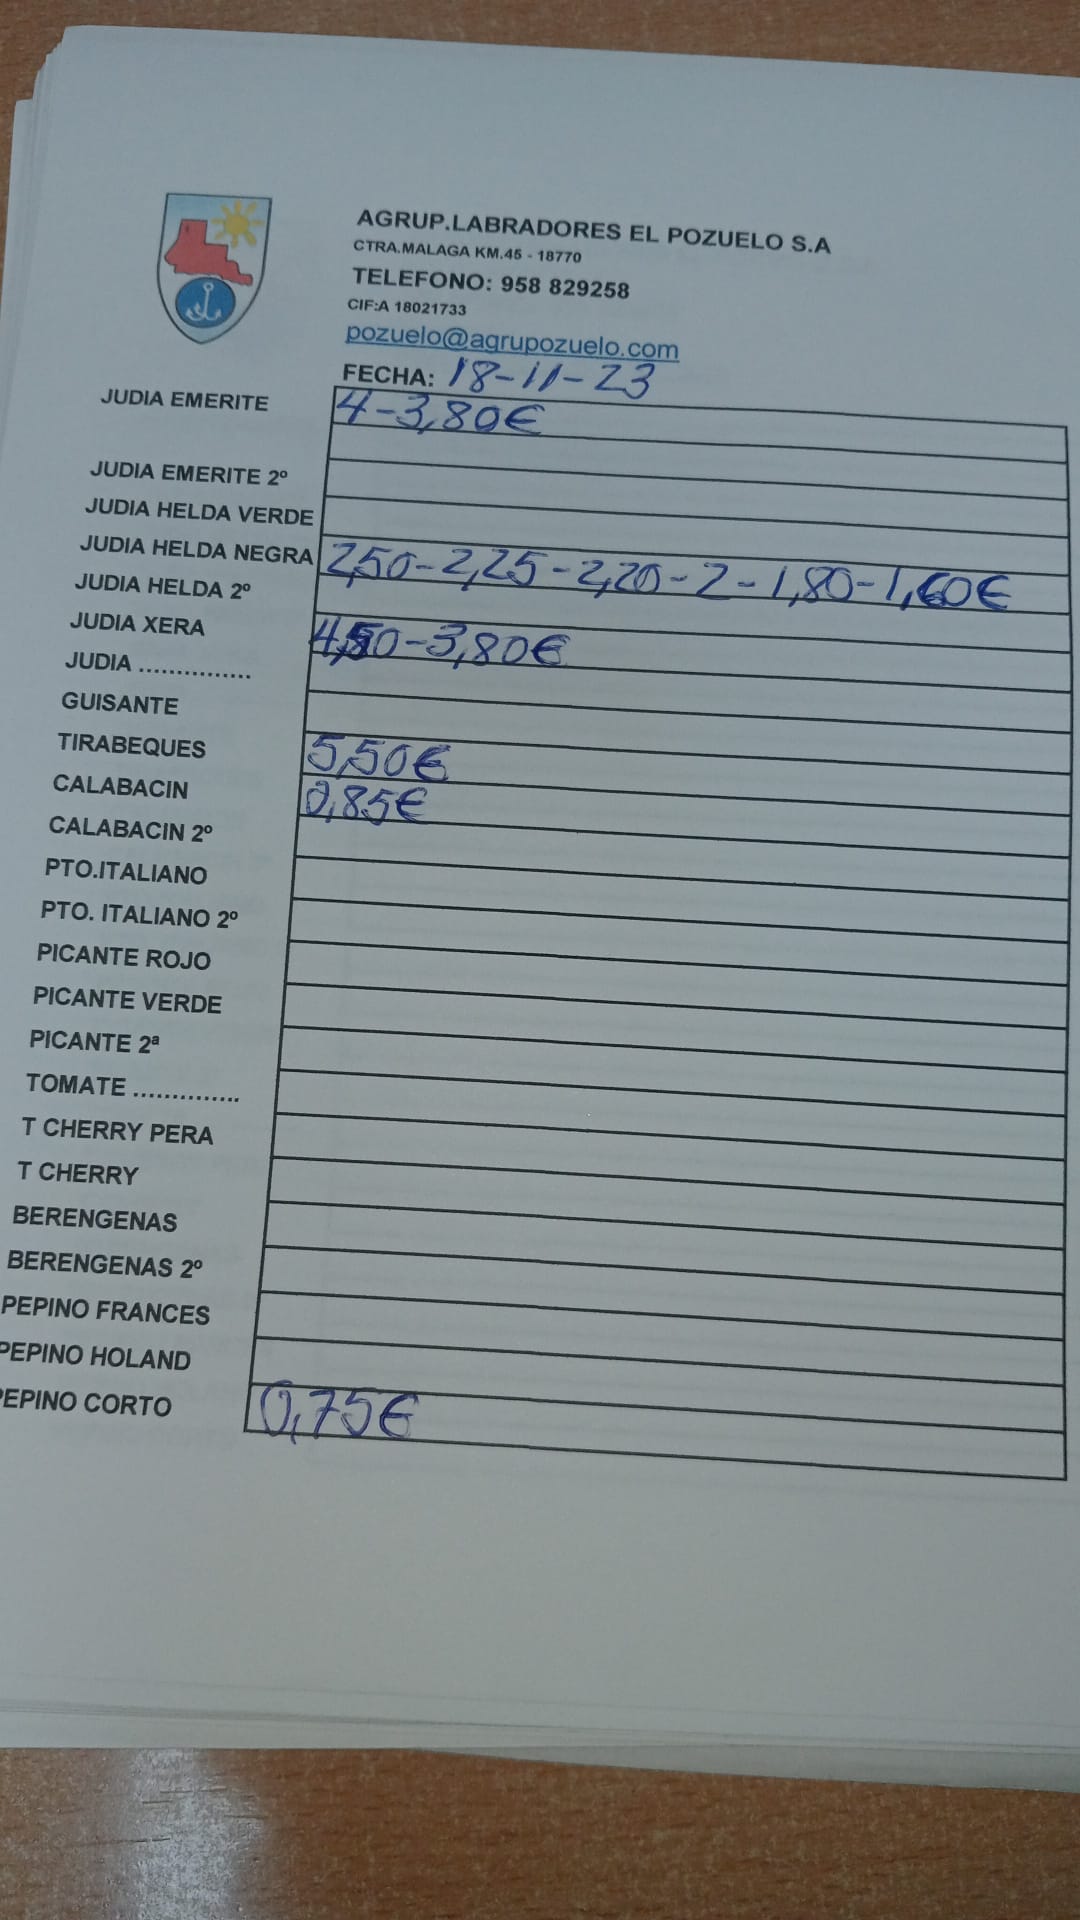 AGRUP.LABRADORES EL POZUELO S.A
CTRA.MALAGA KM.45 - 18770
TELEFONO: 958 829258
CIF:A 18021733
pozuelo@agrupozuelo.com
FECHA: 18-11-23
JUDIA EMERITE 4-3,80€
JUDIA EMERITE 2º
JUDIA HELDA VERDE
JUDIA HELDA NEGRA 2,50-2,25-2,20-2-1,80-1,60€
JUDIA HELDA 2º
JUDIA XERA 4,50-3,80€
JUDIA ...............
GUISANTE
TIRABEQUES 5,50€
CALABACIN 0,85€
CALABACIN 2º
PTO.ITALIANO
PTO. ITALIANO 2º
PICANTE ROJO
PICANTE VERDE
PICANTE 2ª
TOMATE ..............
T CHERRY PERA
T CHERRY
BERENGENAS
BERENGENAS 2º
PEPINO FRANCES
PEPINO HOLAND
PEPINO CORTO 0,75€